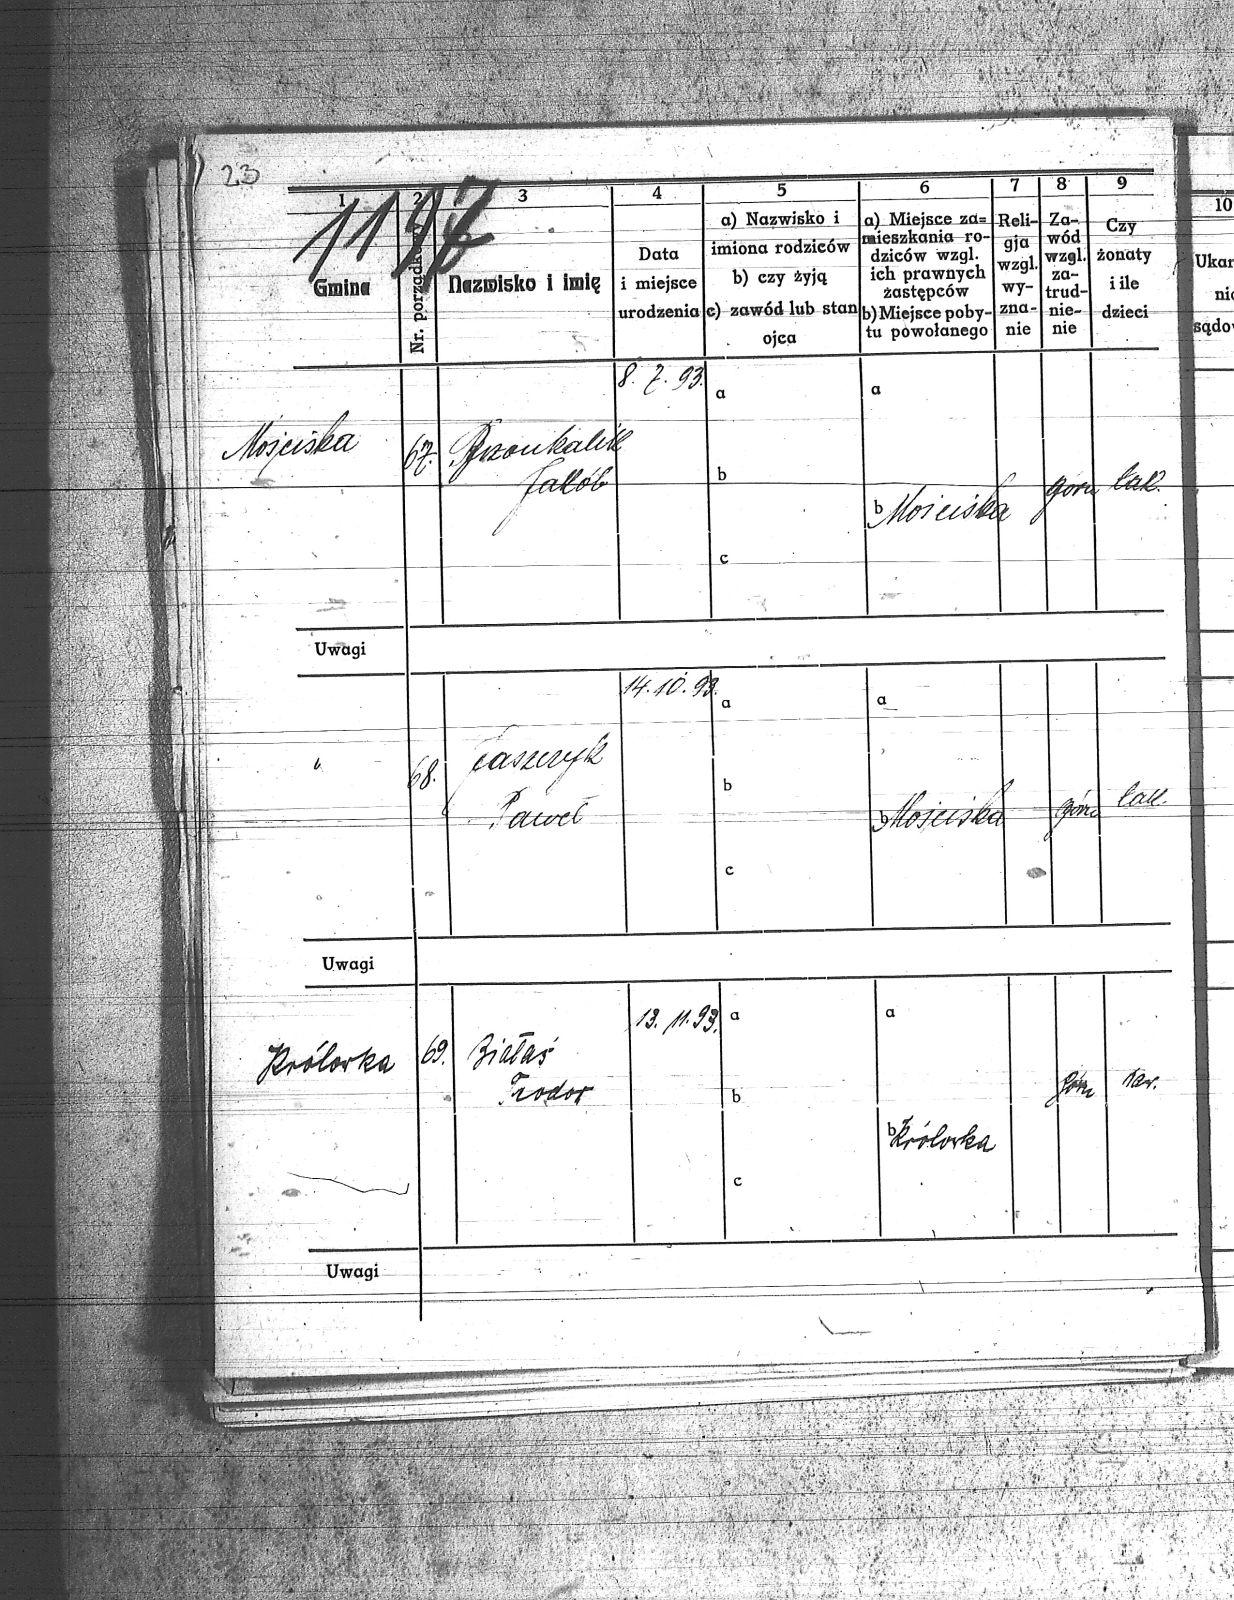 23
1 2 3 4 5 6 7 8 9
Gmina
Nr. porządkowy
Nazwisko i imię
Data
i miejsce
urodzenia
a) Nazwisko i
imiona rodziców
b) czy żyją
c) zawód lub stan
ojca
a) Miejsce za=
mieszkania ro-
dziców wzgl.
ich prawnych
zastępców
b) Miejsce poby-
tu powołanego
Reli-
gja
wzgl.
wy-
zna-
nie
Za-
wód
wzgl.
za-
trud-
nie-
nie
Czy
żonaty
i ile
dzieci
10
8. 7. 93.
a
a
Mościska
67.
Jakób
b
b Mościska
górn
c
Uwagi
14. 10. 93.
a
a
"
68.
Jaszczyk
Paweł
b
b Mościska
górn
c
Uwagi
13. 11. 93.
a
a
Królowka
69.
Białaś
Teodor
b
b Królowka
górn
c
Uwagi